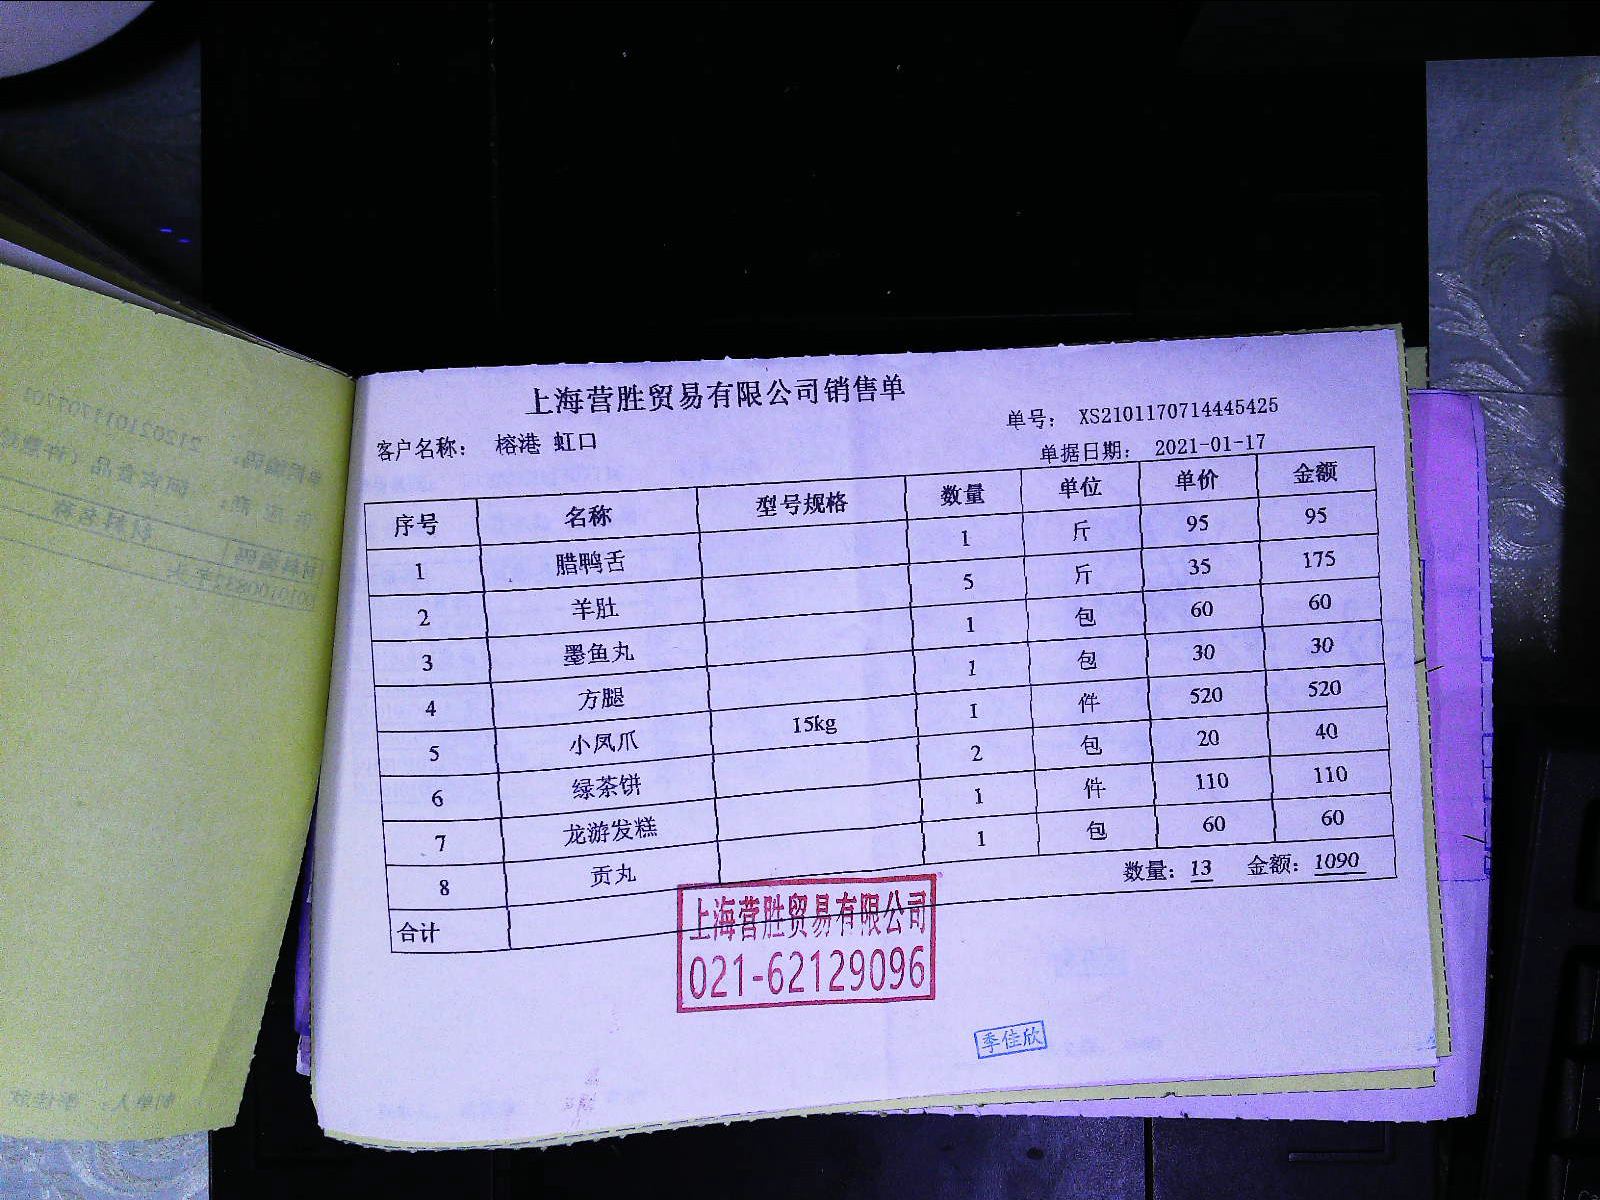 上海营胜贸易有限公司销售单
单号： XS2101170714445425
客户名称： 榕港 虹口
单据日期： 2021-01-17
序号 名称 型号规格 数量 单位 单价 金额
1 腊鸭舌 1 斤 95 95
2 羊肚 5 斤 35 175
3 墨鱼丸 1 包 60 60
4 方腿 1 包 30 30
5 小凤爪 15kg 1 件 520 520
6 绿茶饼 2 包 20 40
7 龙游发糕 1 件 110 110
8 贡丸 1 包 60 60
合计 数量：13 金额：1090
上海营胜贸易有限公司
021-62129096
季佳欣